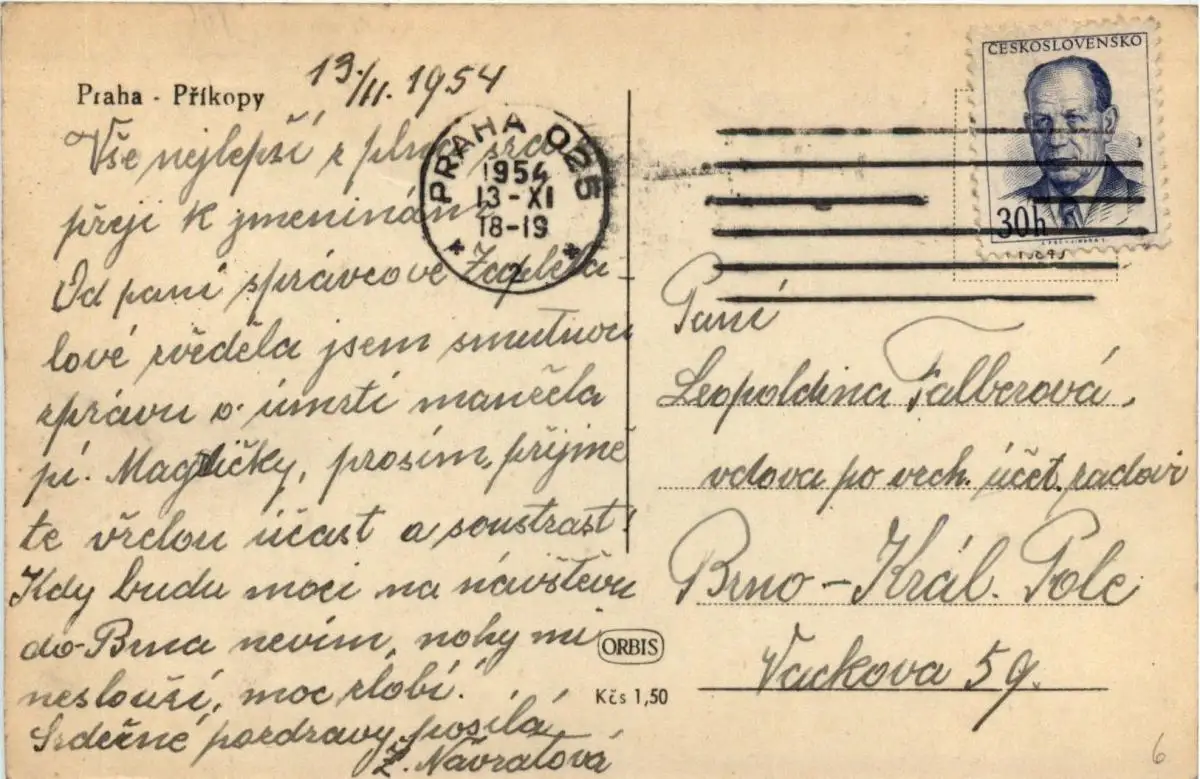 Praha - Příkopy
13./11. 1954
Vše nejlepší z plna srdce
přeji k jmeninám
Od paní správcové Zapleta-
lové zvěděla jsem smutnou
zprávu o úmrtí manžela
pí. Magdičky, prosím, přijmě
te vřelou účast a soustrast!
Kdy budu moci na návštěvu
do Brna nevím, nohy mi
neslouží, moc zlobí.
Srdečné pozdravy posílá
Ž. Navratová
PRAHA 025
1954
13-XI
18-19
ČESKOSLOVENSKO
30h
Paní
Leopoldina Falberová,
vdova po vrch. účet. radovi
Brno - Král. Pole
Vackova 59.
ORBIS
Kčs 1,50
6